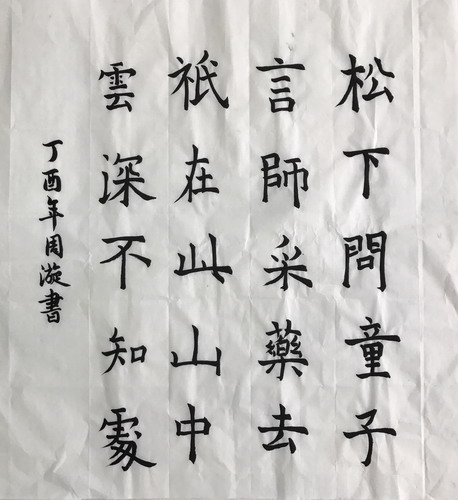 松下問童子
言師采藥去
祇在此山中
雲深不知處
丁酉年周漩書